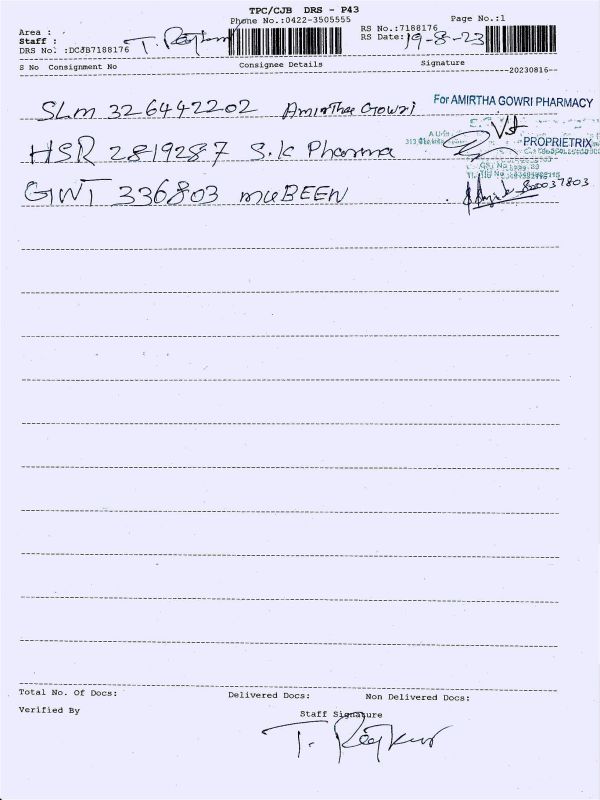 TPC/CJB DRS - P43
Phone No.:0422-3505555
Page No.:1
Area :
RS No.:7188176
Staff : T. Rajkumar
RS Date: 19-8-23
DRS No: :DCJB7188176
S No Consignment No Consignee Details Signature
--20230816--
SLM 326442202 Amirthaa Gowri
For AMIRTHA GOWRI PHARMACY
HSR 2819287 S.K Pharma
PROPRIETRIX
GWT 336803 MUBEEN
Total No. Of Docs: Delivered Docs: Non Delivered Docs:
Verified By
Staff Signature